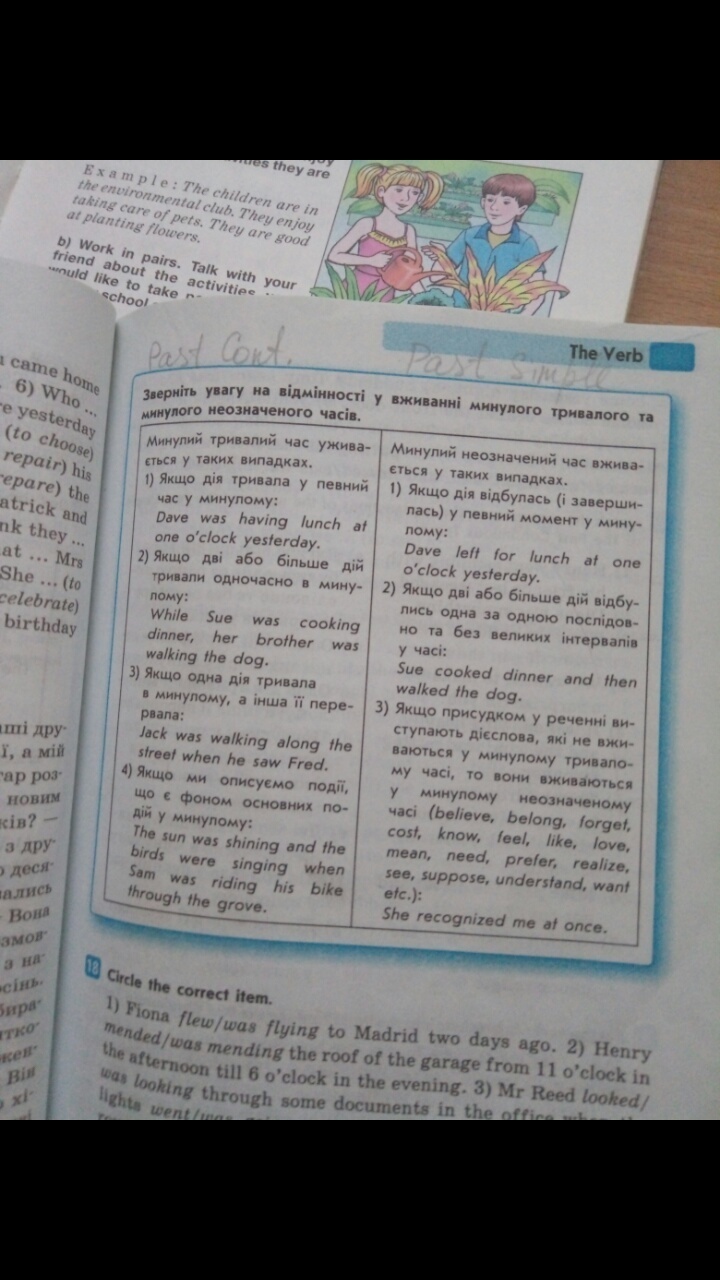 they are
Example: The children are in
the environmental club. They enjoy
taking care of pets. They are good
at planting flowers.
b) Work in pairs. Talk with your
friend about the activities
would like to take
school
came home
6) Who ...
yesterday
(to choose)
repair) his
the
and
they ...
... Mrs
She ... (to
celebrate)
birthday
а мій
новим
з дру-
Вона
з на-
Він
Past Cont.
Past Simple
The Verb
Зверніть увагу на відмінності у вживанні минулого тривалого та
минулого неозначеного часів.
Минулий тривалий час ужива-
ється у таких випадках.
1) Якщо дія тривала у певний
час у минулому:
Dave was having lunch at
one o'clock yesterday.
2) Якщо дві або більше дій
тривали одночасно в мину-
лому:
While Sue was cooking
dinner, her brother was
walking the dog.
3) Якщо одна дія тривала
в минулому, а інша її пере-
рвала:
Jack was walking along the
street when he saw Fred.
4) Якщо ми описуємо події,
що є фоном основних по-
дій у минулому:
The sun was shining and the
birds were singing when
Sam was riding his bike
through the grove.
Минулий неозначений час вжива-
ється у таких випадках.
1) Якщо дія відбулась (і заверши-
лась) у певний момент у мину-
лому:
Dave left for lunch at one
o'clock yesterday.
2) Якщо дві або більше дій відбу-
лись одна за одною послідов-
но та без великих інтервалів
у часі:
Sue cooked dinner and then
walked the dog.
3) Якщо присудком у реченні ви-
ступають дієслова, які не вжи-
ваються у минулому тривало-
му часі, то вони вживаються
у минулому неозначеному
часі (believe, belong, forget,
cost, know, feel, like, love,
mean, need, prefer, realize,
see, suppose, understand, want
etc.):
She recognized me at once.
18 Circle the correct item.
1) Fiona flew/was flying to Madrid two days ago. 2) Henry
mended/was mending the roof of the garage from 11 o'clock in
the afternoon till 6 o'clock in the evening. 3) Mr Reed looked/
was looking through some documents in the office when the
lights went/was